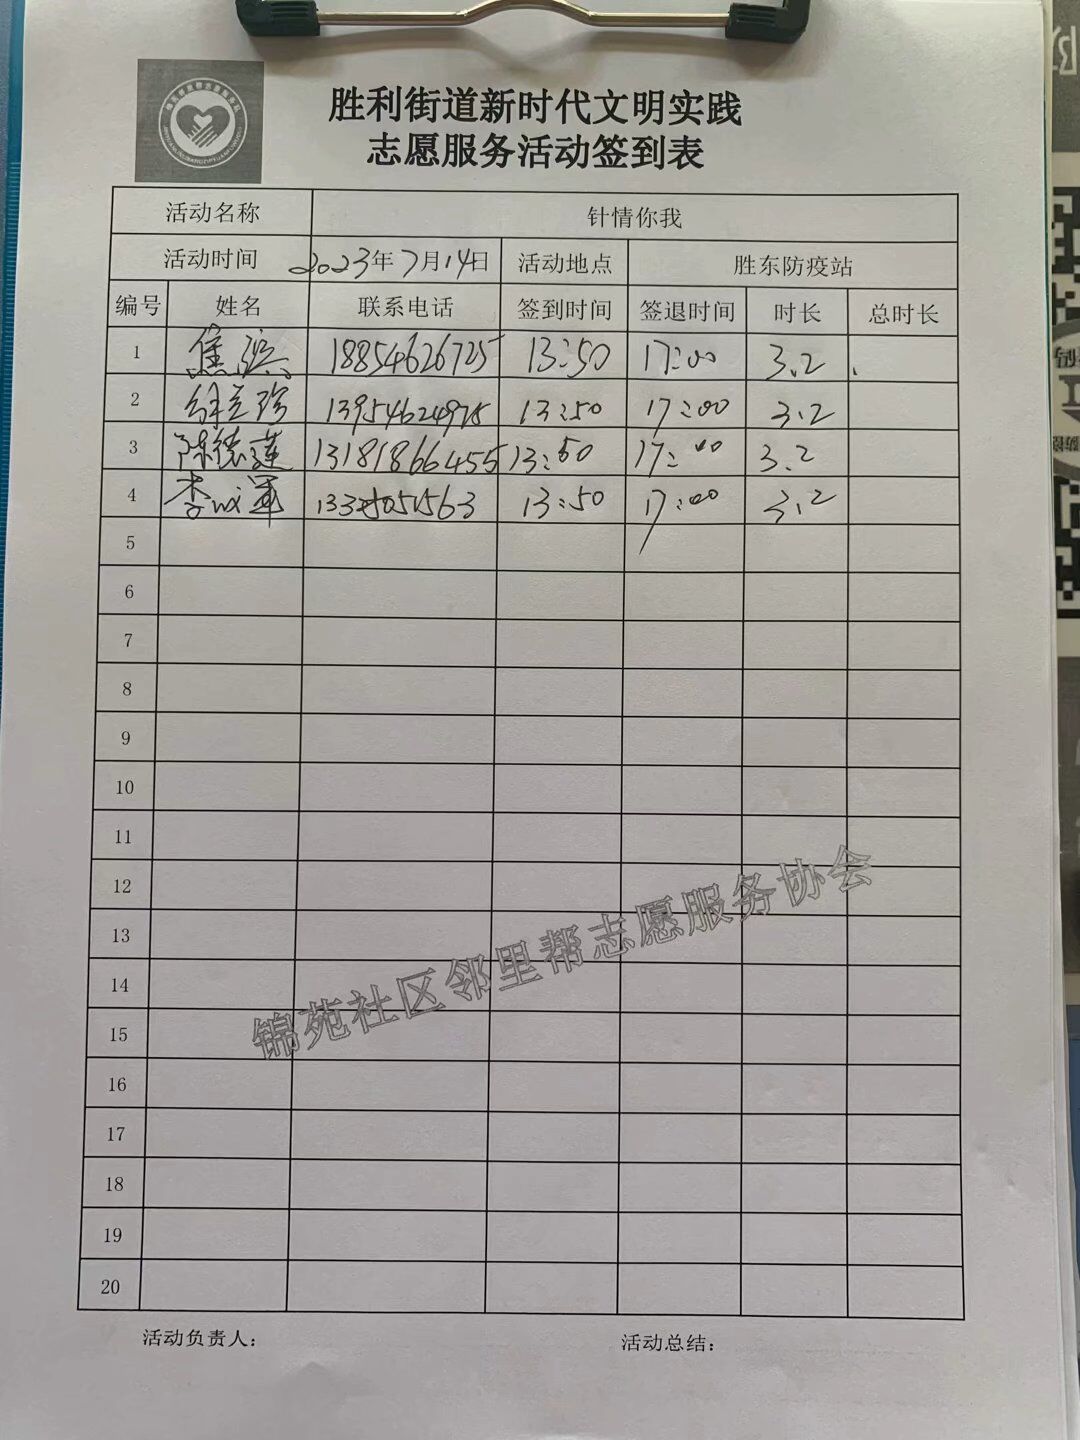 胜利街道新时代文明实践
志愿服务活动签到表
活动名称 针情你我
活动时间 2023年7月14日 活动地点 胜东防疫站
编号 姓名 联系电话 签到时间 签退时间 时长 总时长
1 焦滨 18854626725 13:50 17:00 3.2
2 13954624975 13:50 17:00 3.2
3 陈德莲 13181866455 13:50 17:00 3.2
4 李成军 13:50 17:00 3.2
5
6
7
8
9
10
11
12
13
14
15
16
17
18
19
20
锦苑社区邻里帮志愿服务协会
活动负责人: 活动总结: